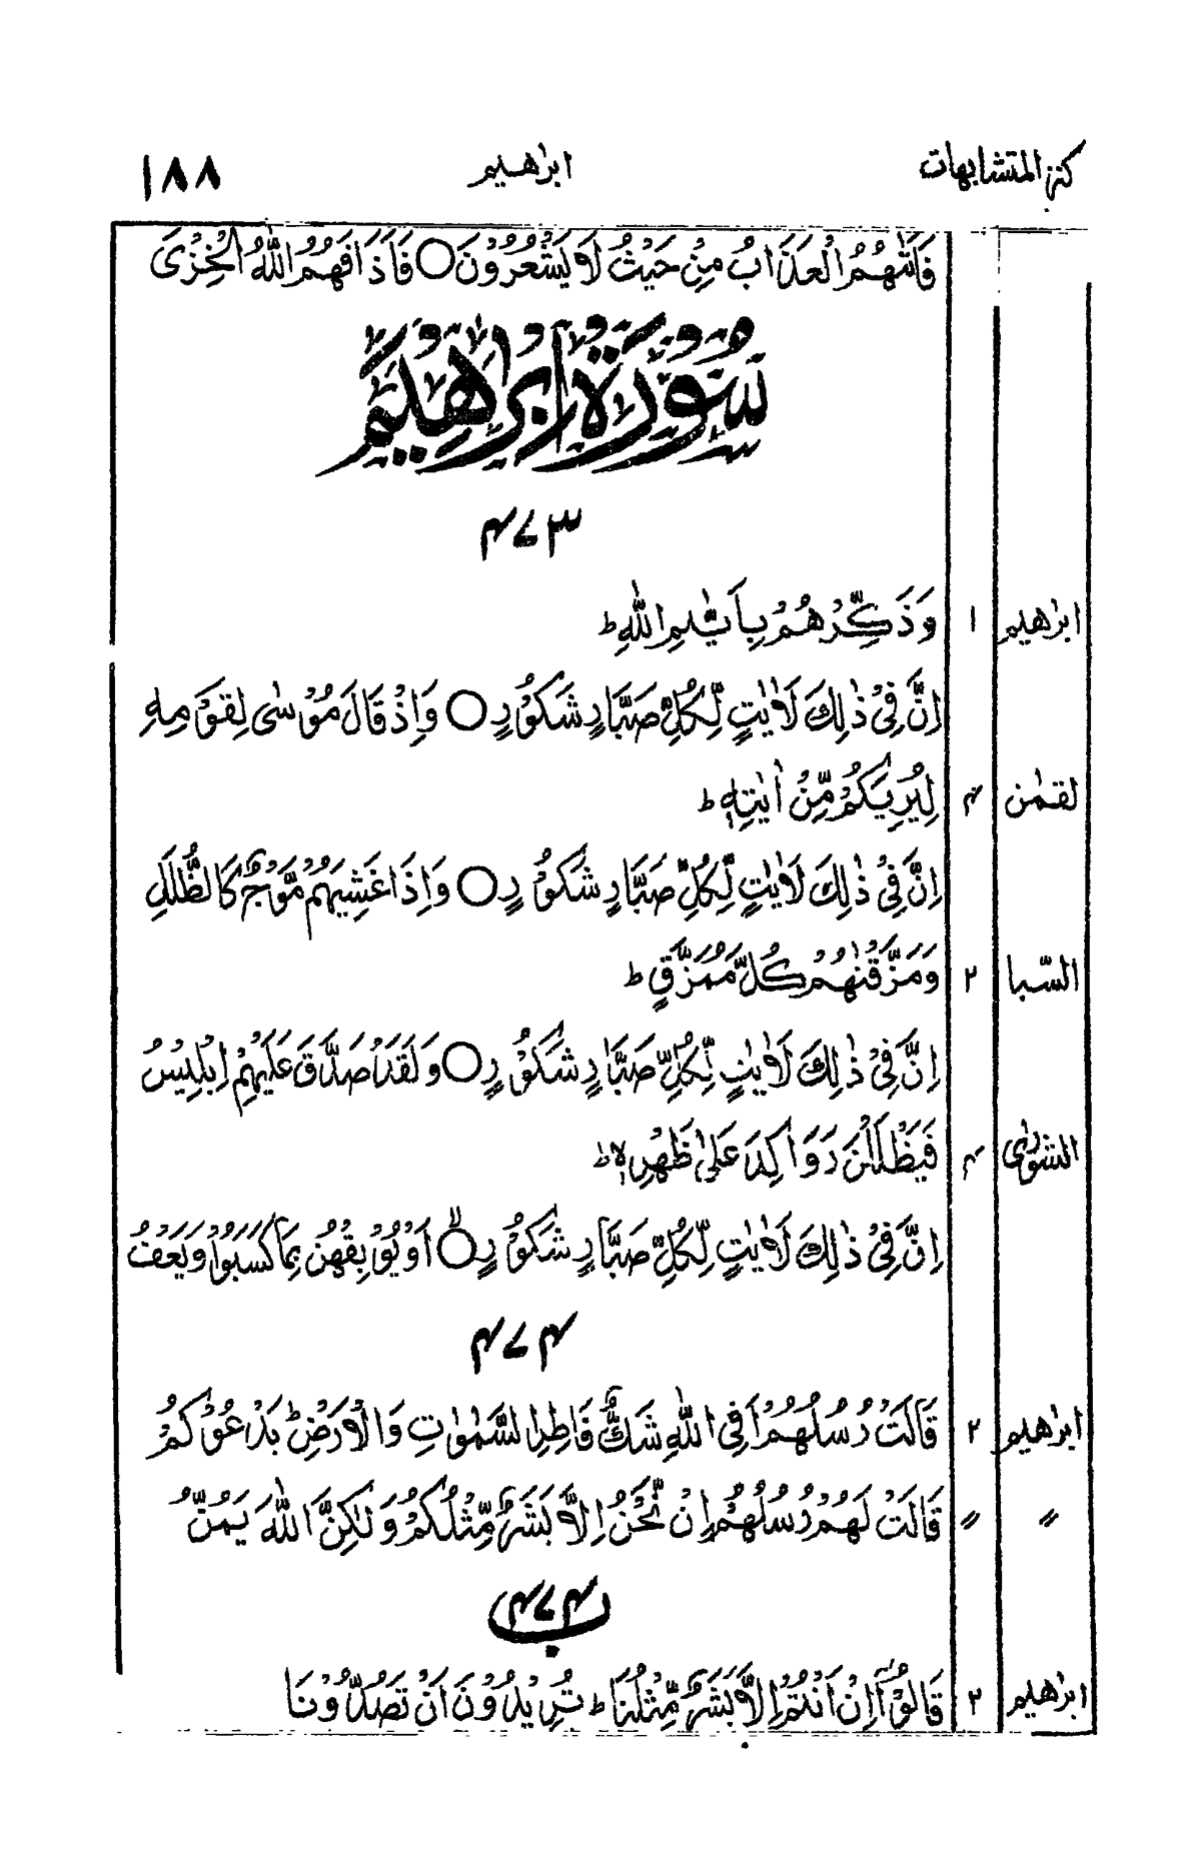 كنز المتشابهات ابرٰهيم ١٨٨
فَاَتٰىهُمُ الْعَذَابُ مِنْ حَيْثُ لَا يَشْعُرُوْنَ ○ فَاَذَاقَهُمُ اللّٰهُ الْخِزْىَ
سُوْرَةُ اِبْرٰهِيْمَ
۴۷۳
ابرٰهيم ١ وَذَكِّرْهُمْ بِاَيّٰىمِ اللّٰهِ ؕ
اِنَّ فِىْ ذٰلِكَ لَاٰيٰتٍ لِّكُلِّ صَبَّارٍ شَكُوْرٍ ○ وَاِذْ قَالَ مُوْسٰى لِقَوْمِهِ
لقمٰن ۴ لِيُرِيَكُمْ مِّنْ اٰيٰتِهٖ ؕ
اِنَّ فِىْ ذٰلِكَ لَاٰيٰتٍ لِّكُلِّ صَبَّارٍ شَكُوْرٍ ○ وَاِذَا غَشِيَهُمْ مَّوْجٌ كَالظُّلَلِ
السّبا ٢ وَمَزَّقْنٰهُمْ كُلَّ مُمَزَّقٍ ؕ
اِنَّ فِىْ ذٰلِكَ لَاٰيٰتٍ لِّكُلِّ صَبَّارٍ شَكُوْرٍ ○ وَلَقَدْ صَدَّقَ عَلَيْهِمْ اِبْلِيْسُ
الشورٰى ۴ فَيَظْلَلْنَ رَوَاكِدَ عَلٰى ظَهْرِهٖ ؕ
اِنَّ فِىْ ذٰلِكَ لَاٰيٰتٍ لِّكُلِّ صَبَّارٍ شَكُوْرٍ ○ اَوْ يُوْبِقْهُنَّ بِمَا كَسَبُوْا وَيَعْفُ
۴۷۴
ابرٰهيم ٢ قَالَتْ رُسُلُهُمْ اَفِى اللّٰهِ شَكٌّ فَاطِرِ السَّمٰوٰتِ وَالْاَرْضِ ؕ يَدْعُوْكُمْ
〃 〃 قَالَتْ لَهُمْ رُسُلُهُمْ اِنْ نَّحْنُ اِلَّا بَشَرٌ مِّثْلُكُمْ وَلٰكِنَّ اللّٰهَ يَمُنُّ
۴۷۴ ب
ابرٰهيم ٢ قَالُوْٓا اِنْ اَنْتُمْ اِلَّا بَشَرٌ مِّثْلُنَا ؕ تُرِيْدُوْنَ اَنْ تَصُدُّوْنَا